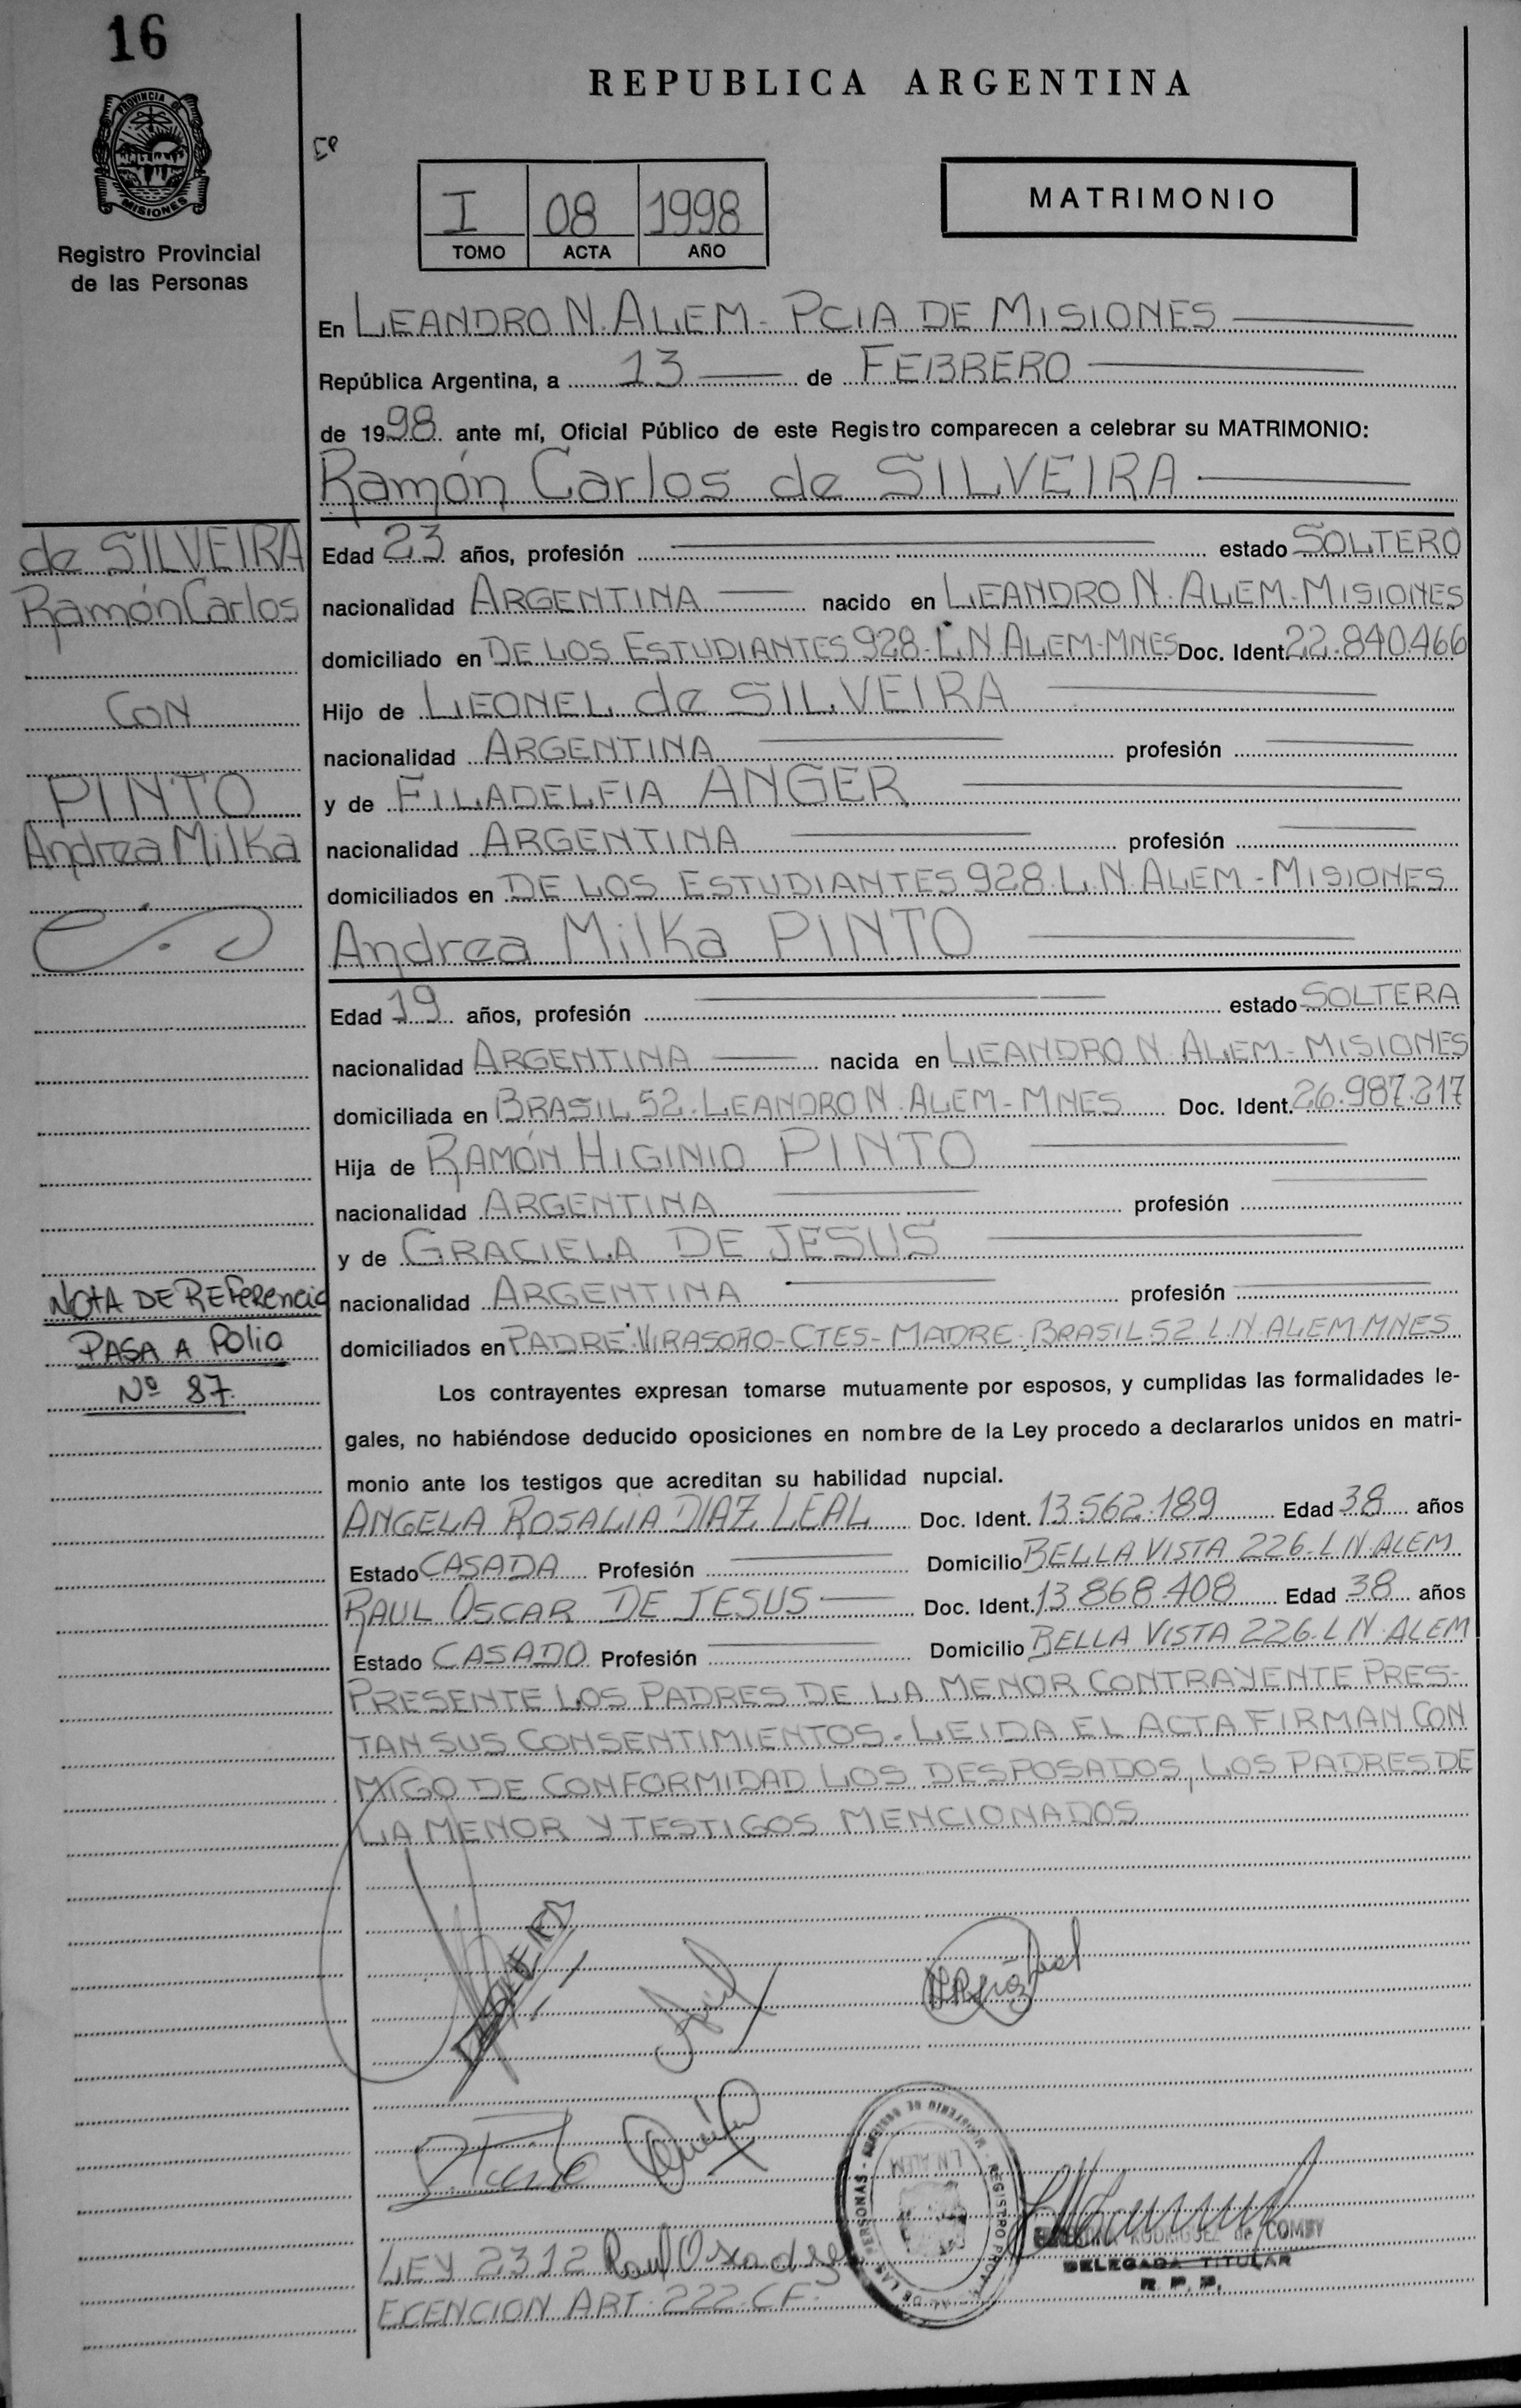 16
PROVINCIA DE
MISIONES
Registro Provincial
de las Personas
REPUBLICA ARGENTINA
I 08 1998
TOMO ACTA AÑO
MATRIMONIO
En LEANDRO N. ALEM - PCIA DE MISIONES
República Argentina, a 13 de FEBRERO
de 1998 ante mí, Oficial Público de este Registro comparecen a celebrar su MATRIMONIO:
Ramón Carlos de SILVEIRA
de SILVEIRA
Ramón Carlos
CON
PINTO
Andrea Milka
Edad 23 años, profesión estado SOLTERO
nacionalidad ARGENTINA nacido en LEANDRO N. ALEM - MISIONES
domiciliado en DE LOS ESTUDIANTES 928 - L.N ALEM-MNES Doc. Ident. 22.840.466
Hijo de LEONEL de SILVEIRA
nacionalidad ARGENTINA profesión
y de FILADELFIA ANGER
nacionalidad ARGENTINA profesión
domiciliados en DE LOS ESTUDIANTES 928. L.N. ALEM - MISIONES
Andrea Milka PINTO
Edad 19 años, profesión estado SOLTERA
nacionalidad ARGENTINA nacida en LEANDRO N. ALEM - MISIONES
domiciliada en BRASIL 52. LEANDRO N. ALEM - MNES Doc. Ident. 26.987.217
Hija de RAMÓN HIGINIO PINTO
nacionalidad ARGENTINA profesión
y de GRACIELA DE JESUS
nacionalidad ARGENTINA profesión
domiciliados en PADRE: VIRASORO-CTES- MADRE: BRASIL 52 L.N. ALEM MNES
NOTA DE REFERENCIA
PASA A FOLIO
Nº 87.
Los contrayentes expresan tomarse mutuamente por esposos, y cumplidas las formalidades le-
gales, no habiéndose deducido oposiciones en nombre de la Ley procedo a declararlos unidos en matri-
monio ante los testigos que acreditan su habilidad nupcial.
ANGELA ROSALIA DIAZ LEAL Doc. Ident. 13.562.189 Edad 38 años
Estado CASADA Profesión Domicilio BELLA VISTA 226. L N. ALEM
RAUL OSCAR DE JESUS Doc. Ident. 13 868.408 Edad 38 años
Estado CASADO Profesión Domicilio BELLA VISTA 226. L N. ALEM
PRESENTE LOS PADRES DE LA MENOR CONTRAYENTE PRES-
TAN SUS CONSENTIMIENTOS. LEIDA EL ACTA FIRMAN CON
MIGO DE CONFORMIDAD LOS DESPOSADOS, LOS PADRES DE
LA MENOR Y TESTIGOS MENCIONADOS
RODRIGUEZ de COMBY
DELEGADA TITULAR
R. P. P.
LEY 2312
EXENCION ART. 222. C.F.